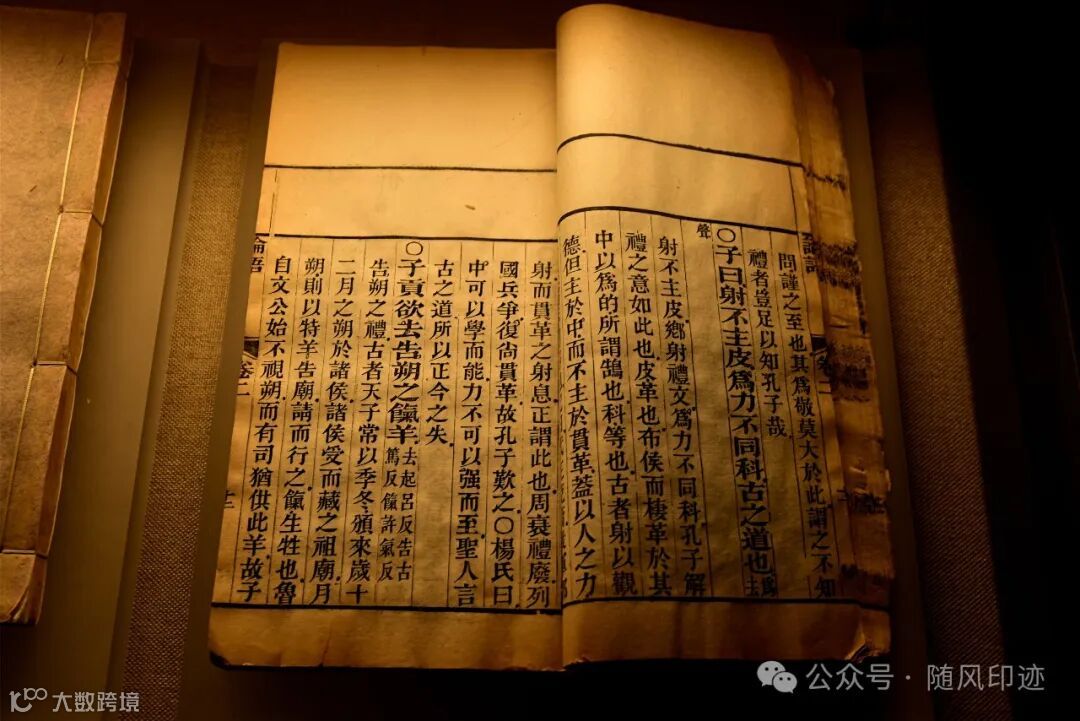 問謹之至也其為敬莫大於此謂之不知
禮者豈足以知孔子哉
○子曰射不主皮爲力不同科古之道也爲去
聲
射不主皮鄉射禮文爲力不同科孔子解
禮之意如此也皮革也布侯而棲革於其
中以爲的所謂鵠也科等也古者射以觀
德但主於中而不主於貫革蓋以人之力
射而貫革之射息正謂此也周衰禮廢列
國兵爭復尚貫革故孔子歎之○楊氏曰
中可以學而能力不可以强而至聖人言
古之道所以正今之失
○子貢欲去告朔之餼羊去起呂反告古篤反餼許氣反
告朔之禮古者天子常以季冬頒來歲十
二月之朔於諸侯諸侯受而藏之祖廟月
朔則以特羊告廟請而行之餼生牲也魯
自文公始不視朔而有司猶供此羊故子
論語
卷二
十二
公众号 · 随风印迹
大数跨境